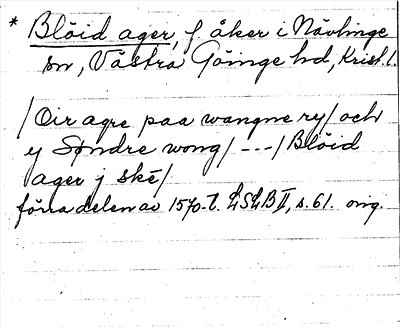 * Blöid ager, f. åker i Nävlinge
sn, Västra Göinge hd, Krist. l.
/Oir agre paa wangne ry/ och
ej Søndre wong/ --- /Blöid
ager j skē/
förra delen av 1570-t. LSLB II, s. 61. omg.